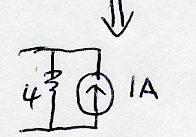 4 1A